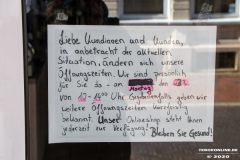 Liebe Kundinnen und Kunden,
in anbetracht der aktuellen
Situation, ändern sich unsere
Öffnungszeiten. Wir sind persönlich
für Sie da - an den
Montag!
von 12 - 16 Uhr. Gegebenenfalls geben wir
weitere Öffnungszeiten kurzfristig
bekannt. Unser Onlineshop steht Ihnen
jederzeit zur Verfügung!
Bleiben Sie Gesund!
© 2020